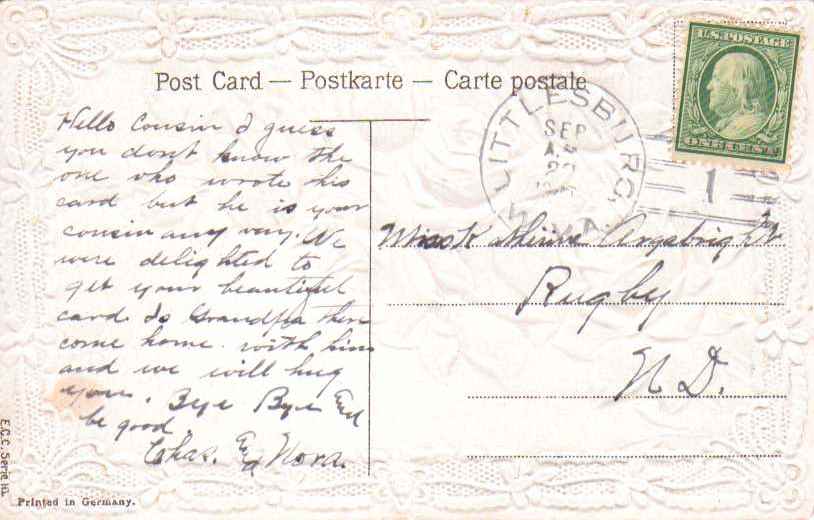 Post Card — Postkarte — Carte postale
U.S. POSTAGE
ONE CENT
LITTLESBURG
SEP
1
Hello Cousin I guess
you dont know the
one who wrote this
card but he is your
cousin any way. We
were delighted to
get your beautiful
card Is Grandpa there
come home with him
and we will hug
you. Bye Bye
be good.
Chas. & Nora.
Miss
Rugby
N D.
E.C.C. Serie
Printed in Germany.